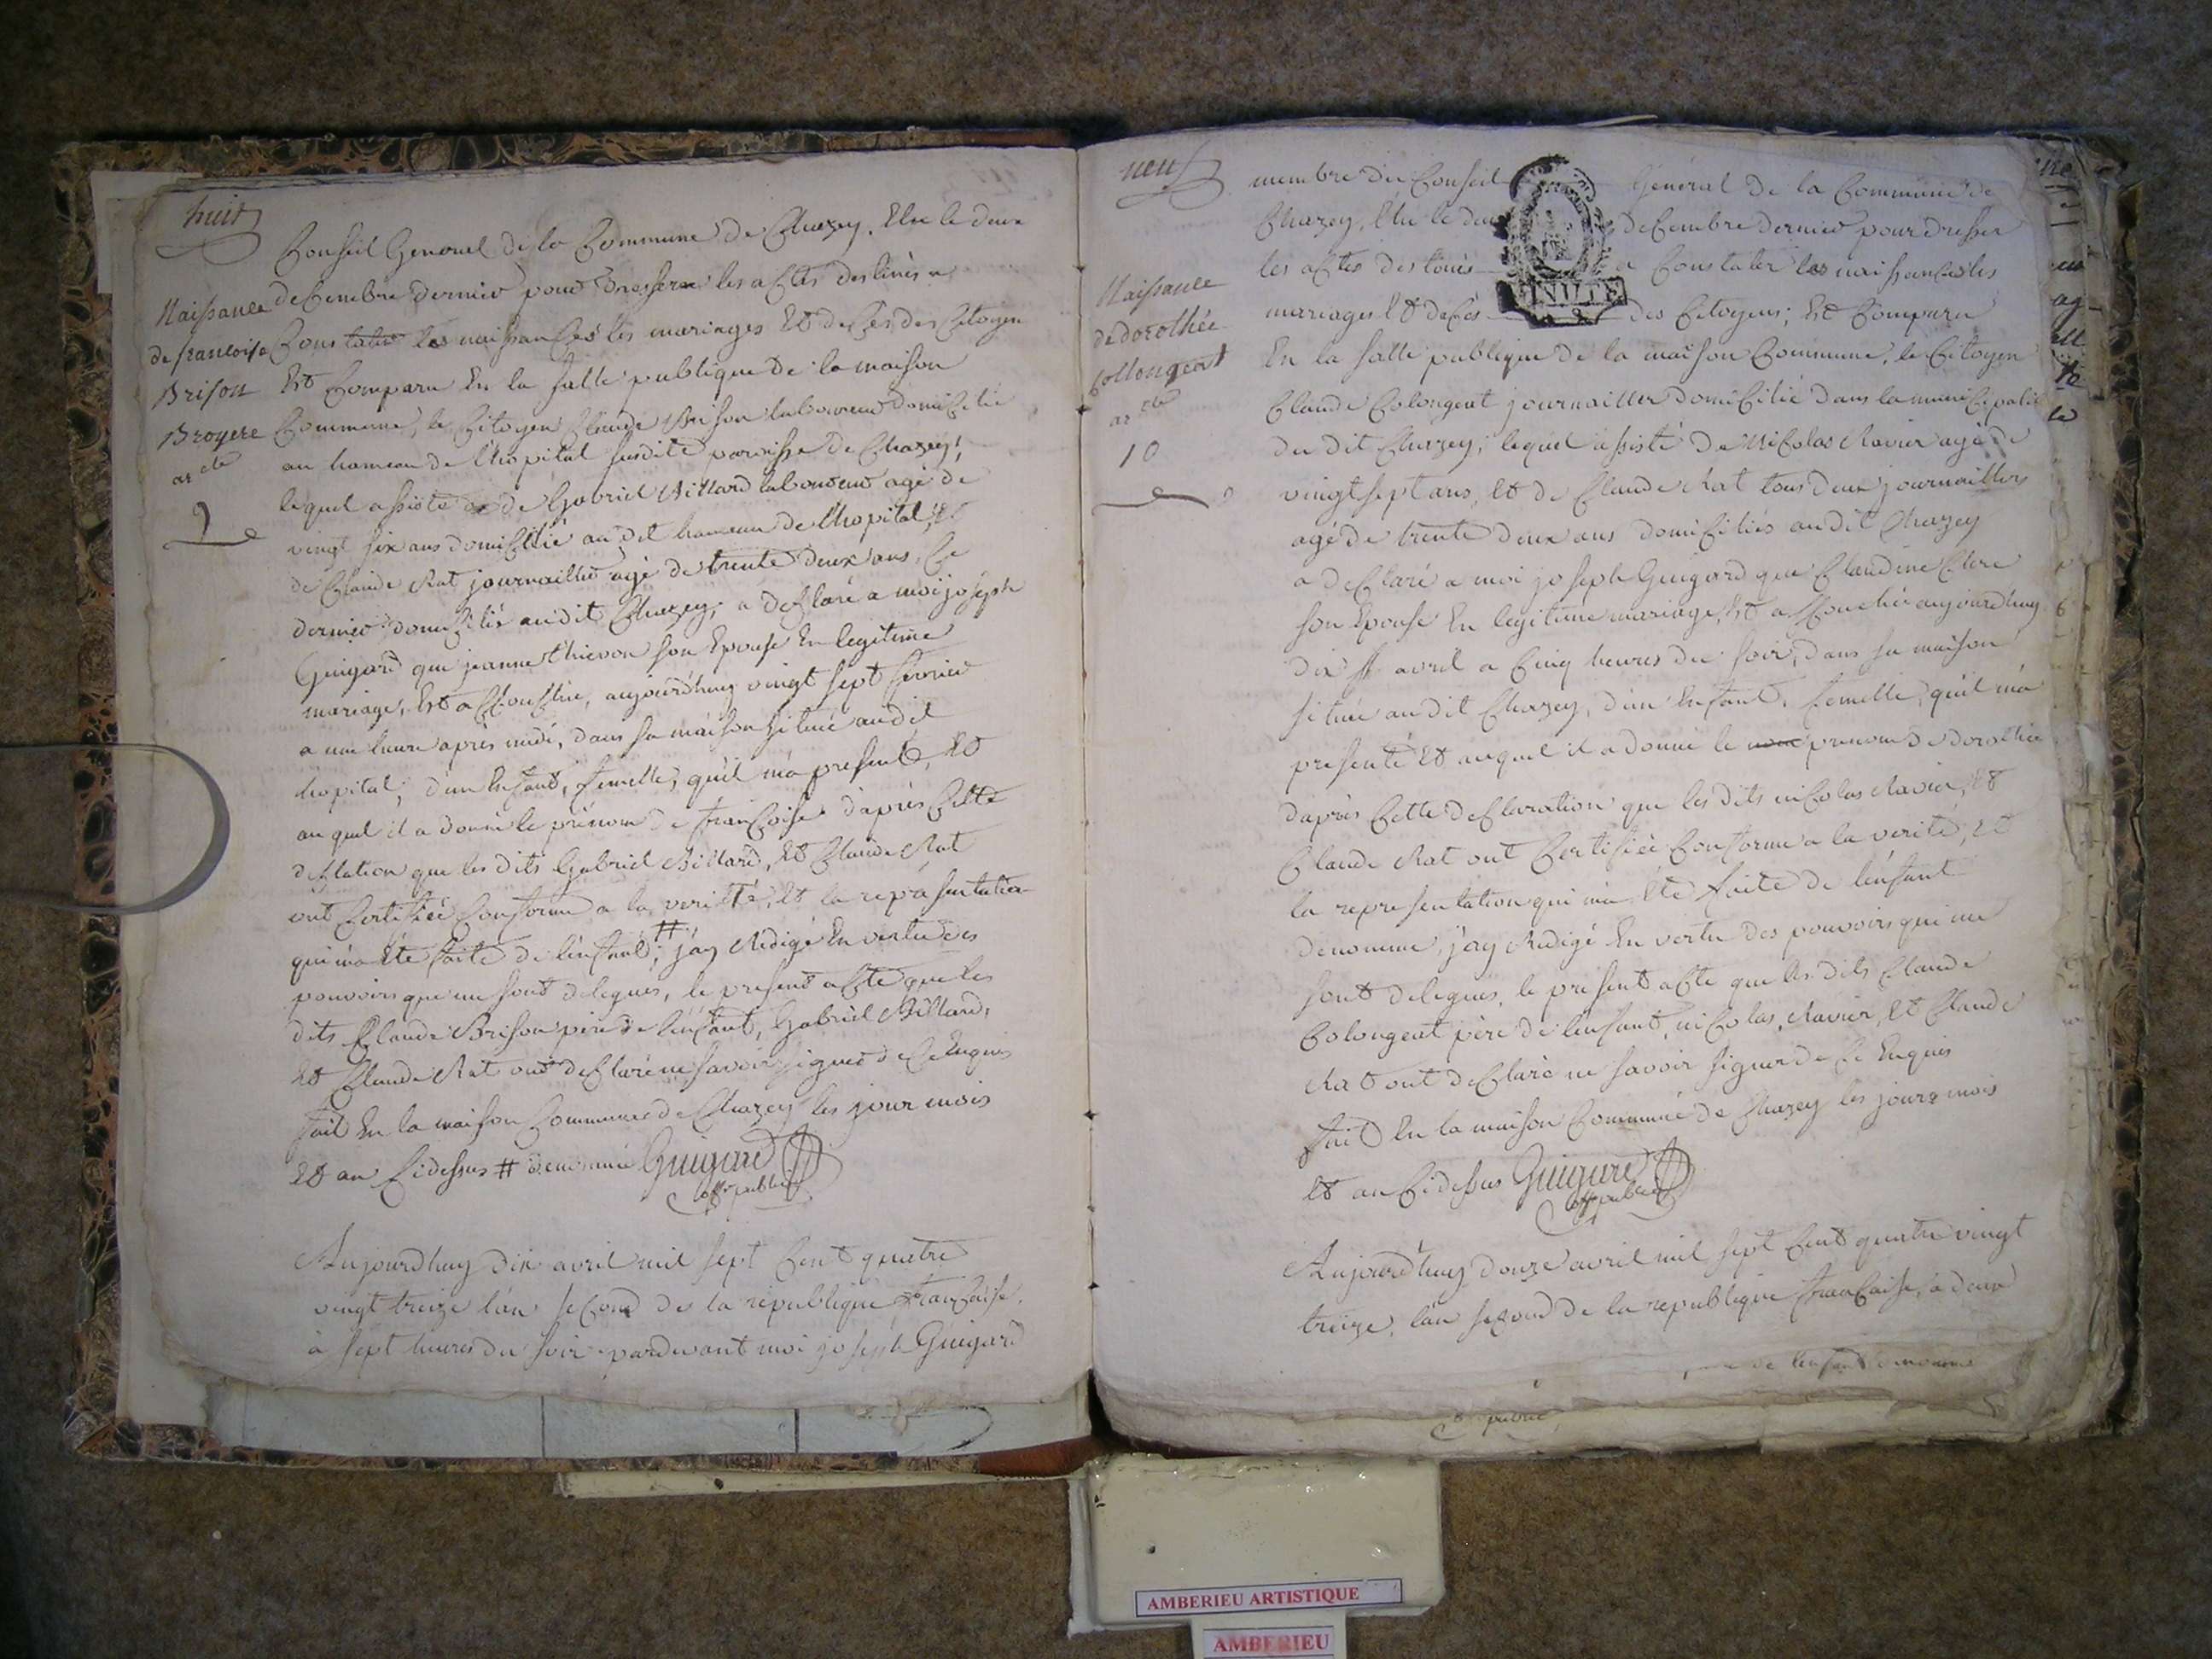 huit
Conseil General de la Commune de Chazey. Elu le deux
decembre dernier pour dresser les actes destinés a
Constater les naissances les mariages Et decès des Citoyen
Est Comparu En la salle publique de la maison
Commune, le Citoyen Claude Brison laboureur domicilié
au hameau de l'hopital susdite paroisse de Chazey,
lequel assisté de Gabriel Billard laboureur agé de
vingt six ans domicilié au dit hameau de l'hopital, Et
de Claude Rat journaillier agé de trente deux ans, Ce
dernier domicilié audit Chazey, a déclaré a moi joseph
Guigard que jeanne thievon son Epouse En legitime
mariage, Est accouchée, aujourd'huy vingt sept fevrier
a une heure après midi, dans sa maison située audit
hopital, d'un Enfant, femelle, qu'il m'a presenté, Et
au quel il a donné le prénom de francoise d'après Cette
declation que les dits Gabriel Billard, Et Claude Rat
ont Certifiée Conforme a la verité, Et la representation
qui m'a Eté faite de l'enfant, # j'ay Rédigé En vertu des
pouvoirs qui me sont delegués, le present acte que les
dits Claude Brison père de l'enfant, Gabriel Billard,
Et Claude Rat ont declaré ne savoir signer de Ce Enquis
fait En la maison Commune de Chazey les jour mois
Et an Cidessus # denommé Guigard
off. public
Naissance
de francoise
Brison
Broyere
ar cle
9
Aujourdhuy dix avril mil sept Cent quatre
vingt treize l'an second de la république francaise.
à sept heures du soir pardevant moi joseph Guigard
neuf
membre du Conseil General de la Commune de
Chazey, Elu le deux decembre dernier pour dresser
les actes destinés a Constater les naissances les
mariages Et decès des Citoyens; Est Comparu
En la salle publique de la maison Commune, le Citoyen
Claude Colongeat journaillier domicilié dans la municipalité
du dit Chazey, lequel assisté de Nicolas Ravier agé de
vingt sept ans, Et de Claude Rat tous deux journailliers
agé de trente deux ans domiciliés audit Chazey
a declaré a moi joseph Guigard que Claudine
son Epouse En legitime mariage, Est accouchée aujourdhuy
dix avril a Cinq heures du soir, dans sa maison
située audit Chazey, d'un Enfant, femelle, qu'il m'a
presenté Et auquel il a donné le nom prenom de dorothée
d'après Cette declaration que les dits nicolas Ravier, Et
Claude Rat ont Certifiée Conforme a la verité, Et
la representation qui m'a Eté faite de l'enfant
denommé, j'ay Redigé En vertu des pouvoirs qui me
sont delegués, le present acte que les dits Claude
Colongeat père de l'enfant, nicolas Ravier, Et Claude
Rat ont declaré ne savoir signer de Ce Enquis
fait En la maison Commune de Chazey les jour mois
Et an Cidessus Guigard
off. public
Naissance
de dorothée
Collongeat
ar cle
10
Aujourdhuy douze avril mil sept Cent quatre vingt
treize, l'an second de la republique francaise, a deux
de l'enfant denommé
public
AMBERIEU ARTISTIQUE
AMBERIEU